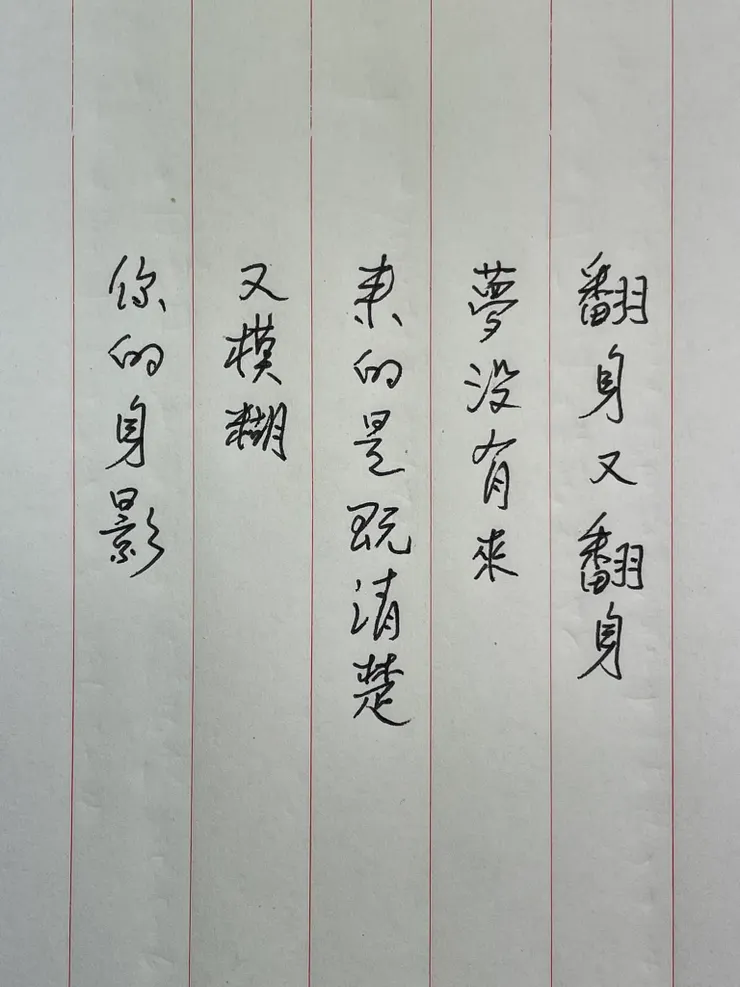 翻身又翻身
夢没有來
来的是既清楚
又模糊
你的身影